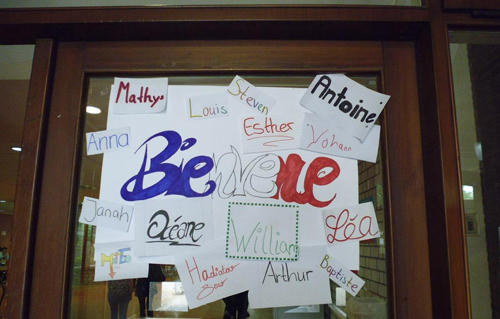 Mathys
Louis
Steven
Antoine
Anna
Esther
Yohann
Bienvenue
Janah
Océane
William
Léa
Hadiatou
Arthur
Baptiste